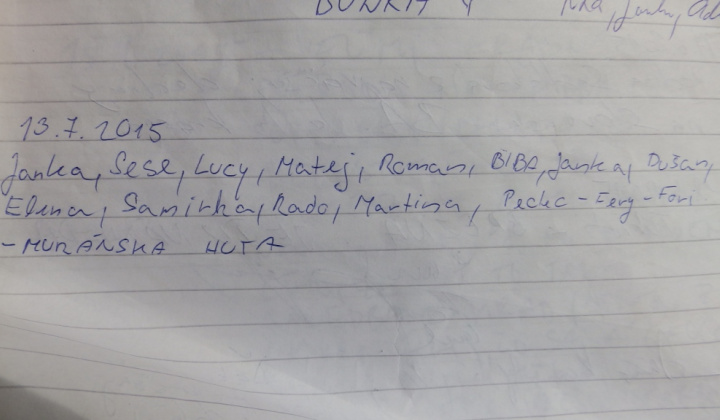 BUNKA 4
Janka,
13.7.2015
Janka, Sese, Lucy, Matej, Roman, BIBA, Janka, Dušan,
Elena, Samirka, Rado, Martina, Pecko - Fery - Fori
- MURÁNSKA HUTA